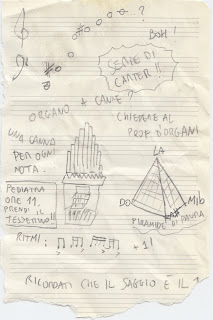 ...?
BOH!
SERIE DI
CANTER!!
ORGANO A CANNE?
CHIEDERE AL
PROF. D'ORGANI
UNA CANNA
PER OGNI
NOTA.
LA
DO
MIb
PEDIATRA
ORE 11,
PRENDI IL
TESSERINO!!
PIRAMIDE DI
RITMI:
+1!
RICORDATI CHE IL SAGGIO È IL 1